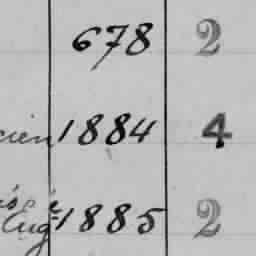 678 2
cien 1884 4
Eug 1885 2